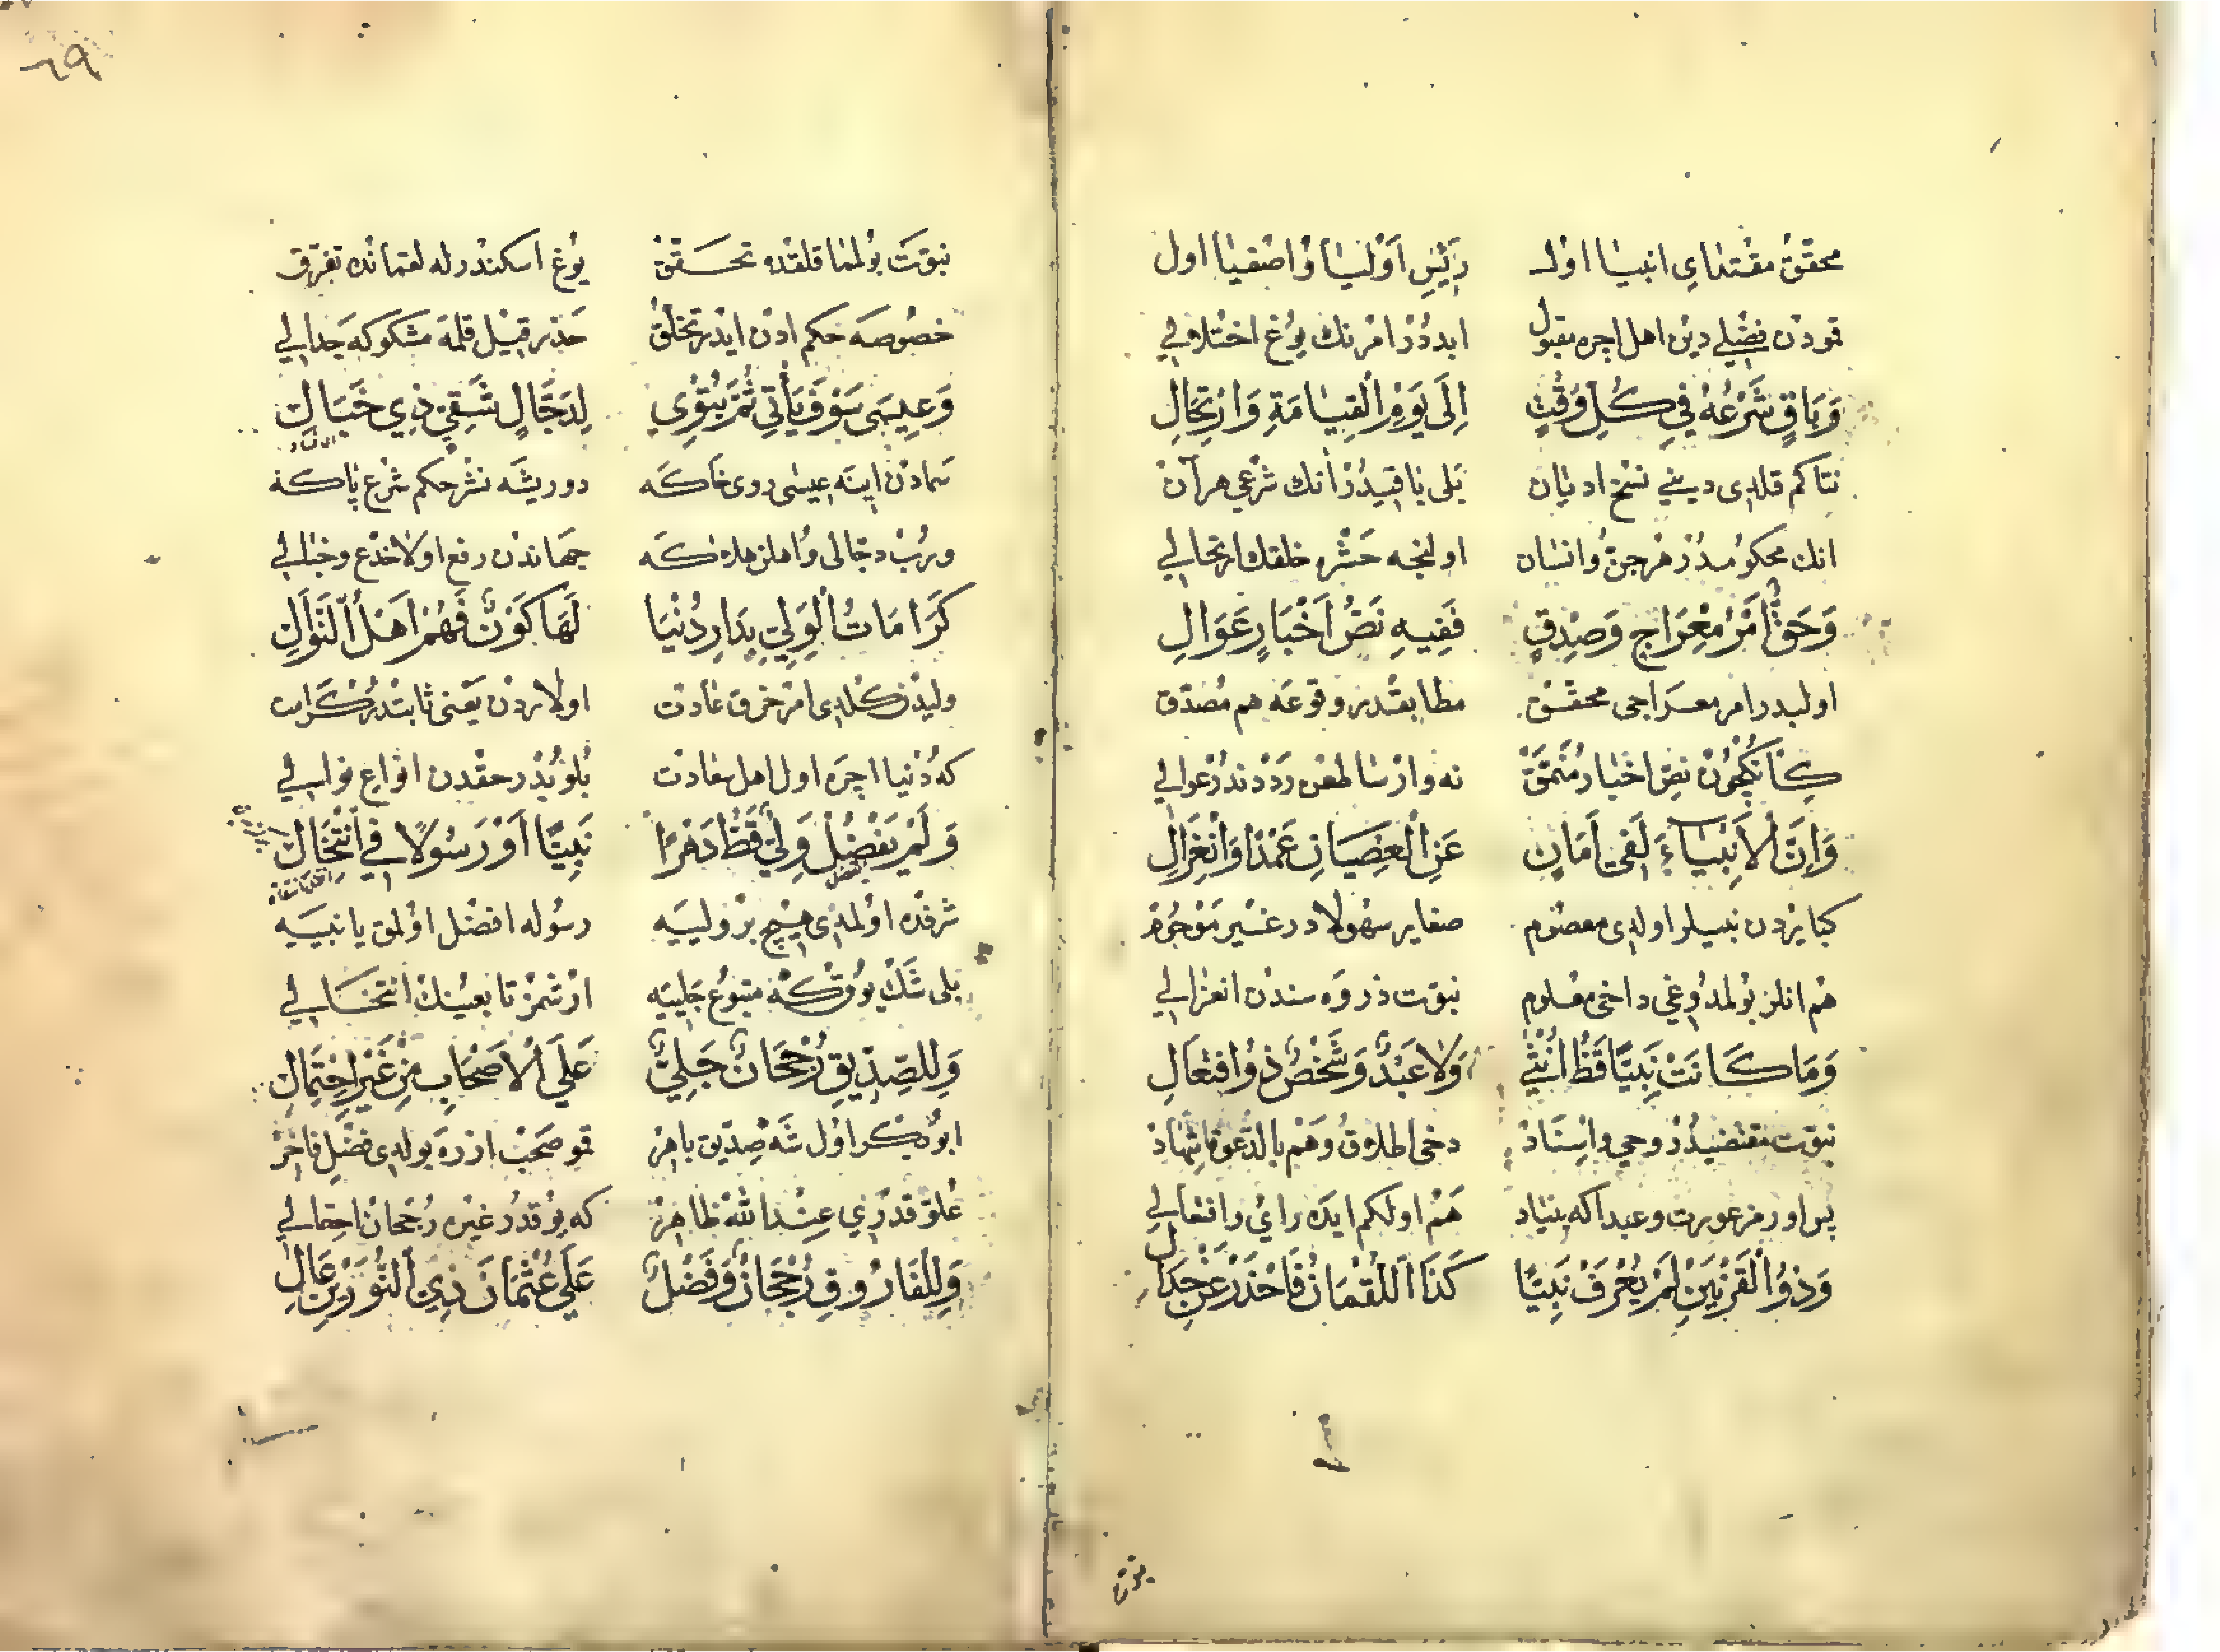 محقق مقتداى انبيا اول رئيس اوليا و اصفيا اول
قودن فضيلى دين اهل اجره مقبول ابددر امرنك يوغ اختلافى
وَبَاقٍ شَرْعُهُ فِي كُلِّ وَقْتٍ اِلَى يَوْمِ الْقِيَامَةِ وَارْتِحَالِ
نتاكم قلدى دينى نسخ اديان بلى باقيدر انك شرعى هر آن
انك محكوميدر هر جن و انسان اولنجه حشره خلقك ارتحالى
وَحَقٌّ اَمْرُ مِعْرَاجٍ وَصِدْقٍ فَفِيهِ نَصُّ اَخْبَارٍ عَوَالِ
اولبدر امر معراجى محقق مطابقدر وقوعه هم مصدق
نص اخبار منمق نه وار طعن ردددندر عوالى
وَاِنَّ الْاَنْبِيَاءَ لَفِى اَمَانٍ عَنِ الْعِصْيَانِ عَمْدًا وَانْعِزَالِ
كبايردن نبيلر اولدى معصوم صغاير سهولادر غير موجوم
هم انلر بولمدوغى داخى معلوم نبوت ذروه سندن انعزالى
وَمَا كَانَتْ نَبِيًّا قَطُّ اُنْثَى وَلَا عَبْدٌ وَشَخْصٌ ذُو افْتِعَالِ
نبوت مقتضيدر وحى و اسناد دخى اطلاق وهم بالدعوة اشهاد
پس اورمز عورت و عبد اكه بنياد هم اولكم ايده راى و افتعالى
وَذُوا الْقَرْنَيْنِ لَمْ يُعْرَفْ نَبِيًّا كَذَا اللُّقْمَانُ فَاحْذَرْ عَنْ جِدَالِ
نبوت
٦٩
نبوت بولمنا قلقده تحقق يوغ اسكندرله لقمانده تفرق
خصوصه حكم ادن ايدر تخلق حذر قيل قلمه مشكوكه جدالى
وَعِيسَى سَوْفَ يَأْتِي ثُمَّ يُتْوِي لِدَجَّالٍ شَقِيٍّ ذِي خَبَالِ
سمادن اينه عيسى روى خاكه دوريشه نشر حكم شرع پاكه
ويرب دجالى و اهلن هلاكه جهاندن رفع اولا خدع و خبالى
كَرَامَاتُ الْوَلِيِّ بِدَارِ دُنْيَا لَهَا كَوْنٌ فَهُمْ اَهْلُ النَّوَالِ
وليدن كلدى امر خرق عادت اولاردن يعنى ثابتدر كرامت
كه دنيا اچره اول اهل سعادت بلوبدر حقدن انواع نوالى
وَلَمْ يَفْضُلْ وَلِيٌّ قَطُّ دَهْرًا نَبِيًّا اَوْ رَسُولًا فِي انْتِحَالِ
شرفده اولمدى هيچ بر وليه رسوله افضل اولمق يا نبييه
بلى شك يوقكه متبوع جليه ارشمز تابعينك انتحالى
وَلِلصِّدِّيقِ رُجْحَانٌ جَلِيٌّ عَلَى الْاَصْحَابِ مِنْ غَيْرِ احْتِمَالِ
ابو بكر اول شه صديق باهر قمو صحب ازره بولدى فضل فاخر
علو قدرى عند الله ظاهر كه يوقدر غيره رجحان احتمالى
وَلِلْفَارُوقِ رُجْحَانٌ وَفَضْلٌ عَلَى عُثْمَانَ ذِي النُّورَيْنِ عَالِ